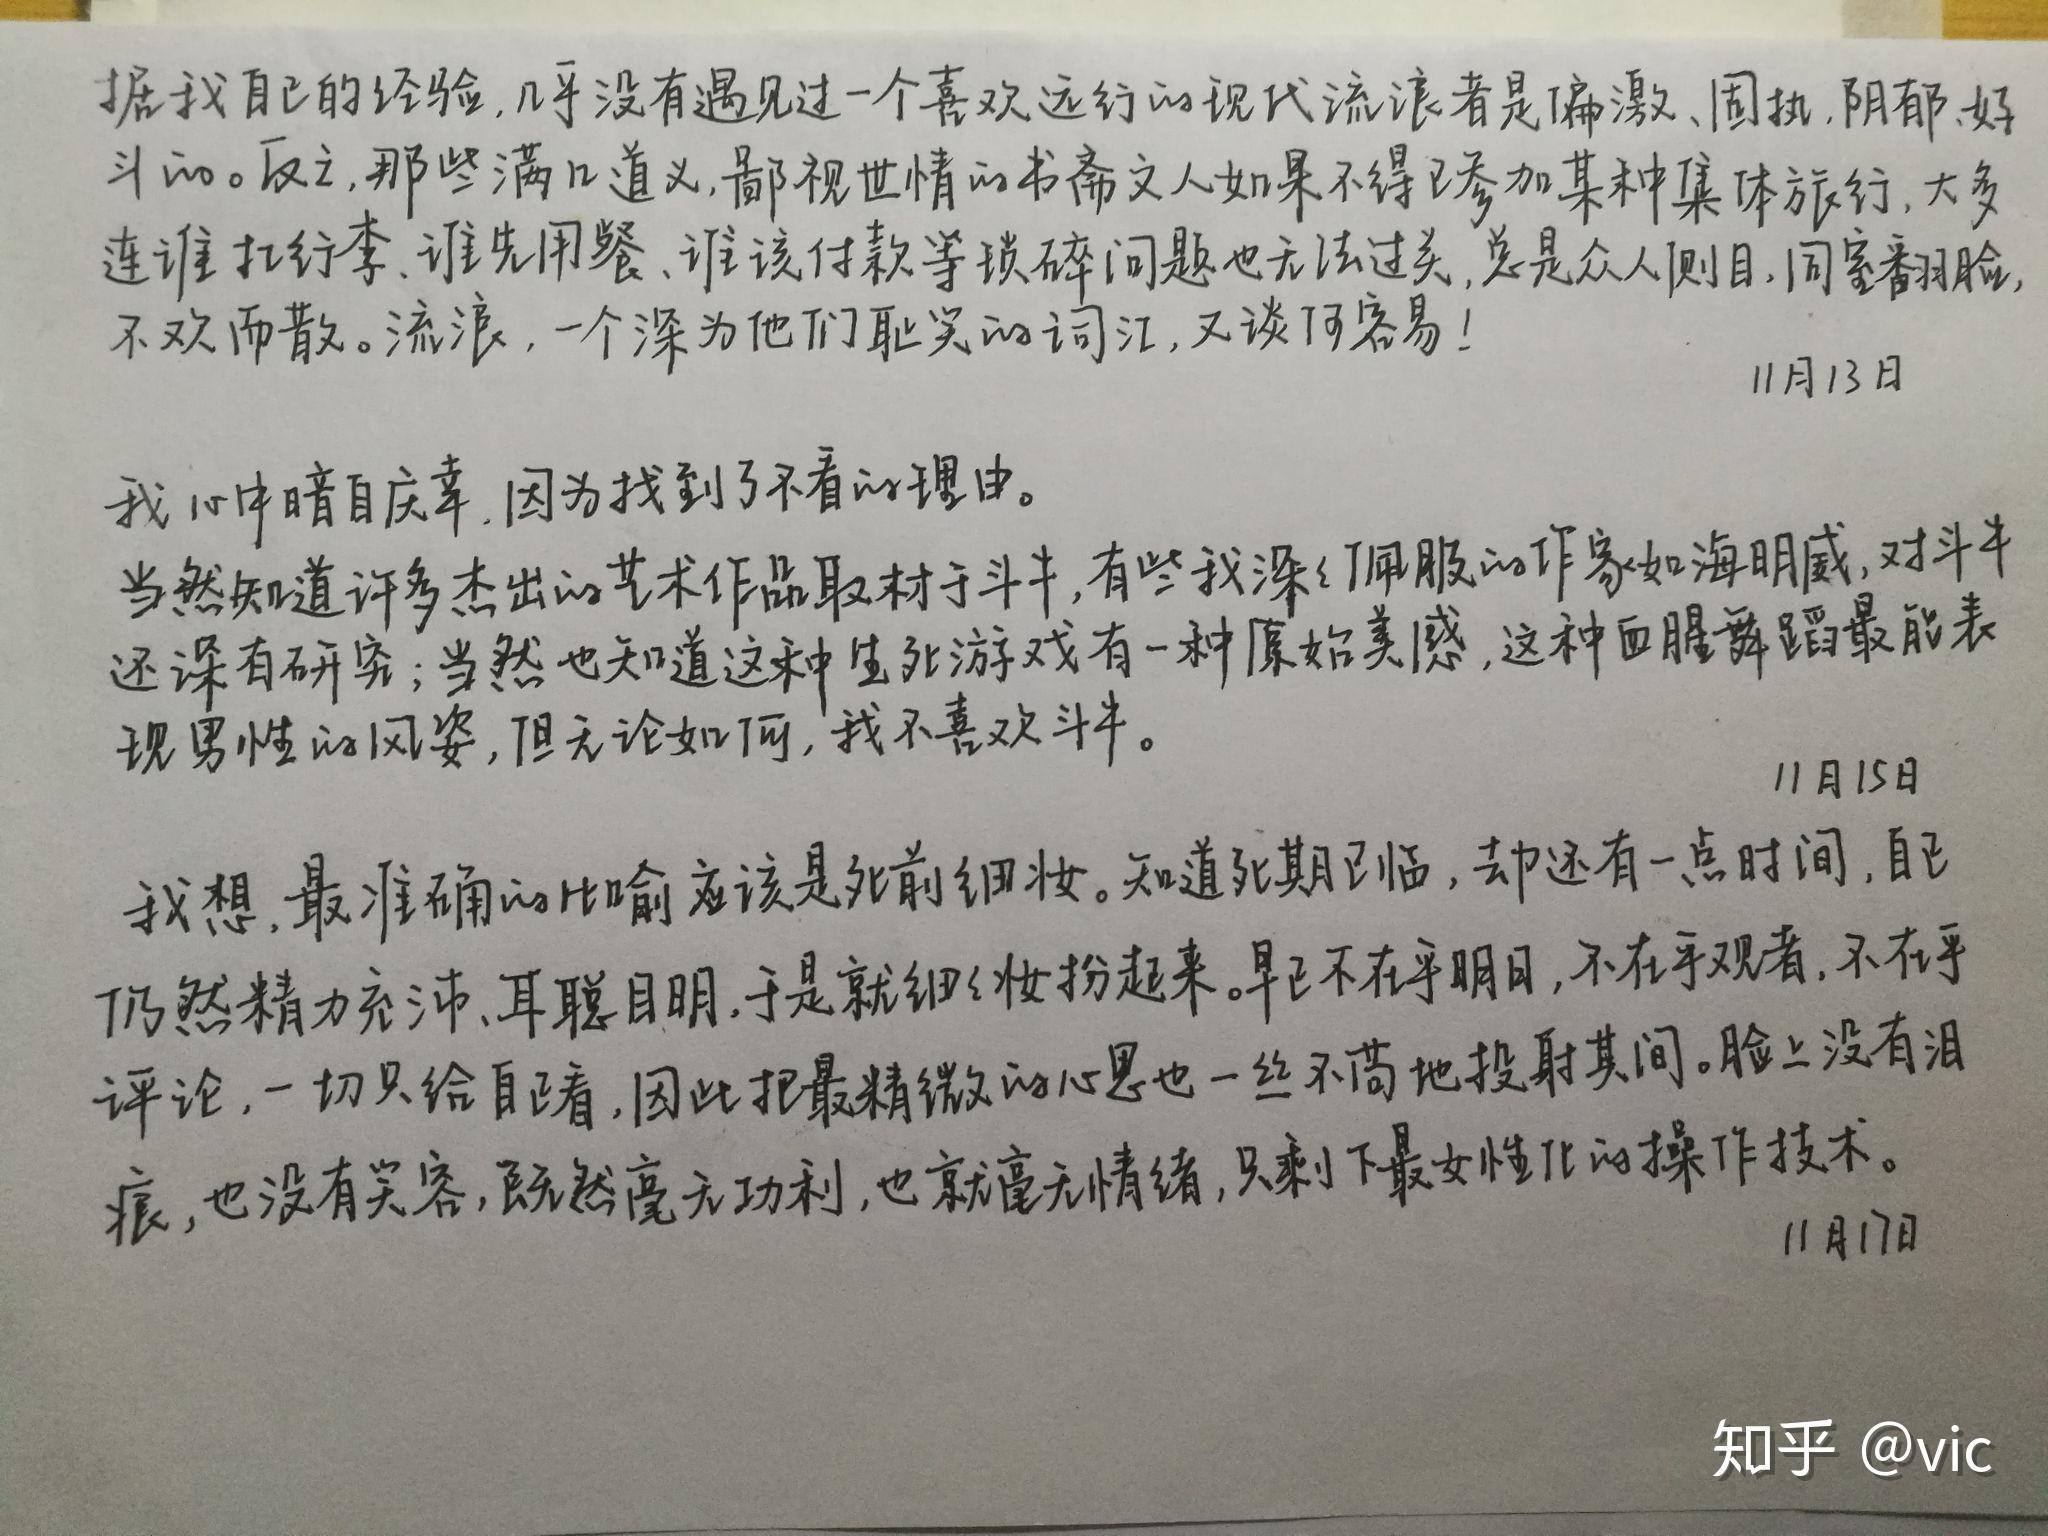 据我自己的经验，几乎没有遇见过一个喜欢远行的现代流浪者是偏激、固执，阴郁、好
斗的。反之，那些满口道义，鄙视世情的书斋文人如果不得已参加某种集体旅行，大多
连谁扛行李、谁先用餐、谁该付款等琐碎问题也无法过关，总是众人侧目，同室翻脸，
不欢而散。流浪，一个深为他们耻笑的词汇，又谈何容易！
11月13日
我心中暗自庆幸，因为找到了不看的理由。
当然知道许多杰出的艺术作品取材于斗牛，有些我深深佩服的作家如海明威，对斗牛
还深有研究；当然也知道这种生死游戏有一种原始美感，这种血腥舞蹈最能表
现男性的风姿，但无论如何，我不喜欢斗牛。
11月15日
我想，最准确的比喻应该是死前细妆。知道死期已临，却还有一点时间，自己
仍然精力充沛、耳聪目明，于是就细细妆扮起来。早已不在乎明日，不在乎观者，不在乎
评论，一切只给自己看，因此把最精微的心思也一丝不苟地投射其间。脸上没有泪
痕，也没有笑容，既然毫无功利，也就毫无情绪，只剩下最女性化的操作技术。
11月17日
知乎 @vic